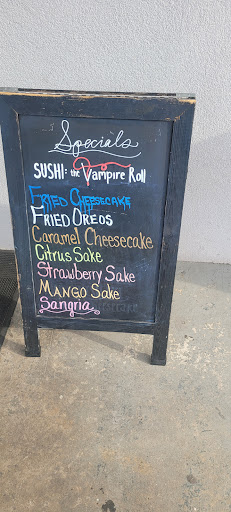 Specials
SUSHI: the Vampire Roll
FRIED CHEESECAKE
FRIED OREOS
Caramel Cheesecake
Citrus Sake
Strawberry Sake
MANGO Sake
Sangria